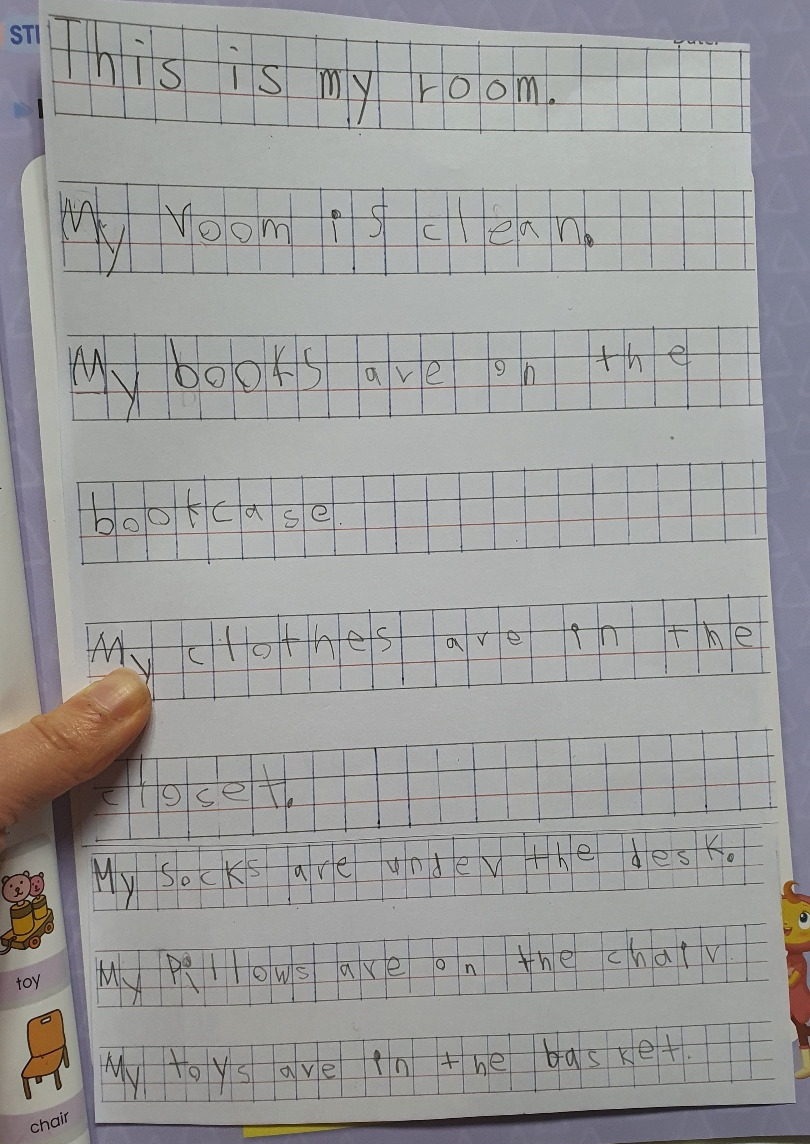 STU
Date:
This is my room.
My room is clean.
My books are on the
bookcase.
My clothes are in the
closet.
My socks are under the desk.
My Pillows are on the chair.
My toys are in the basket.
toy
chair